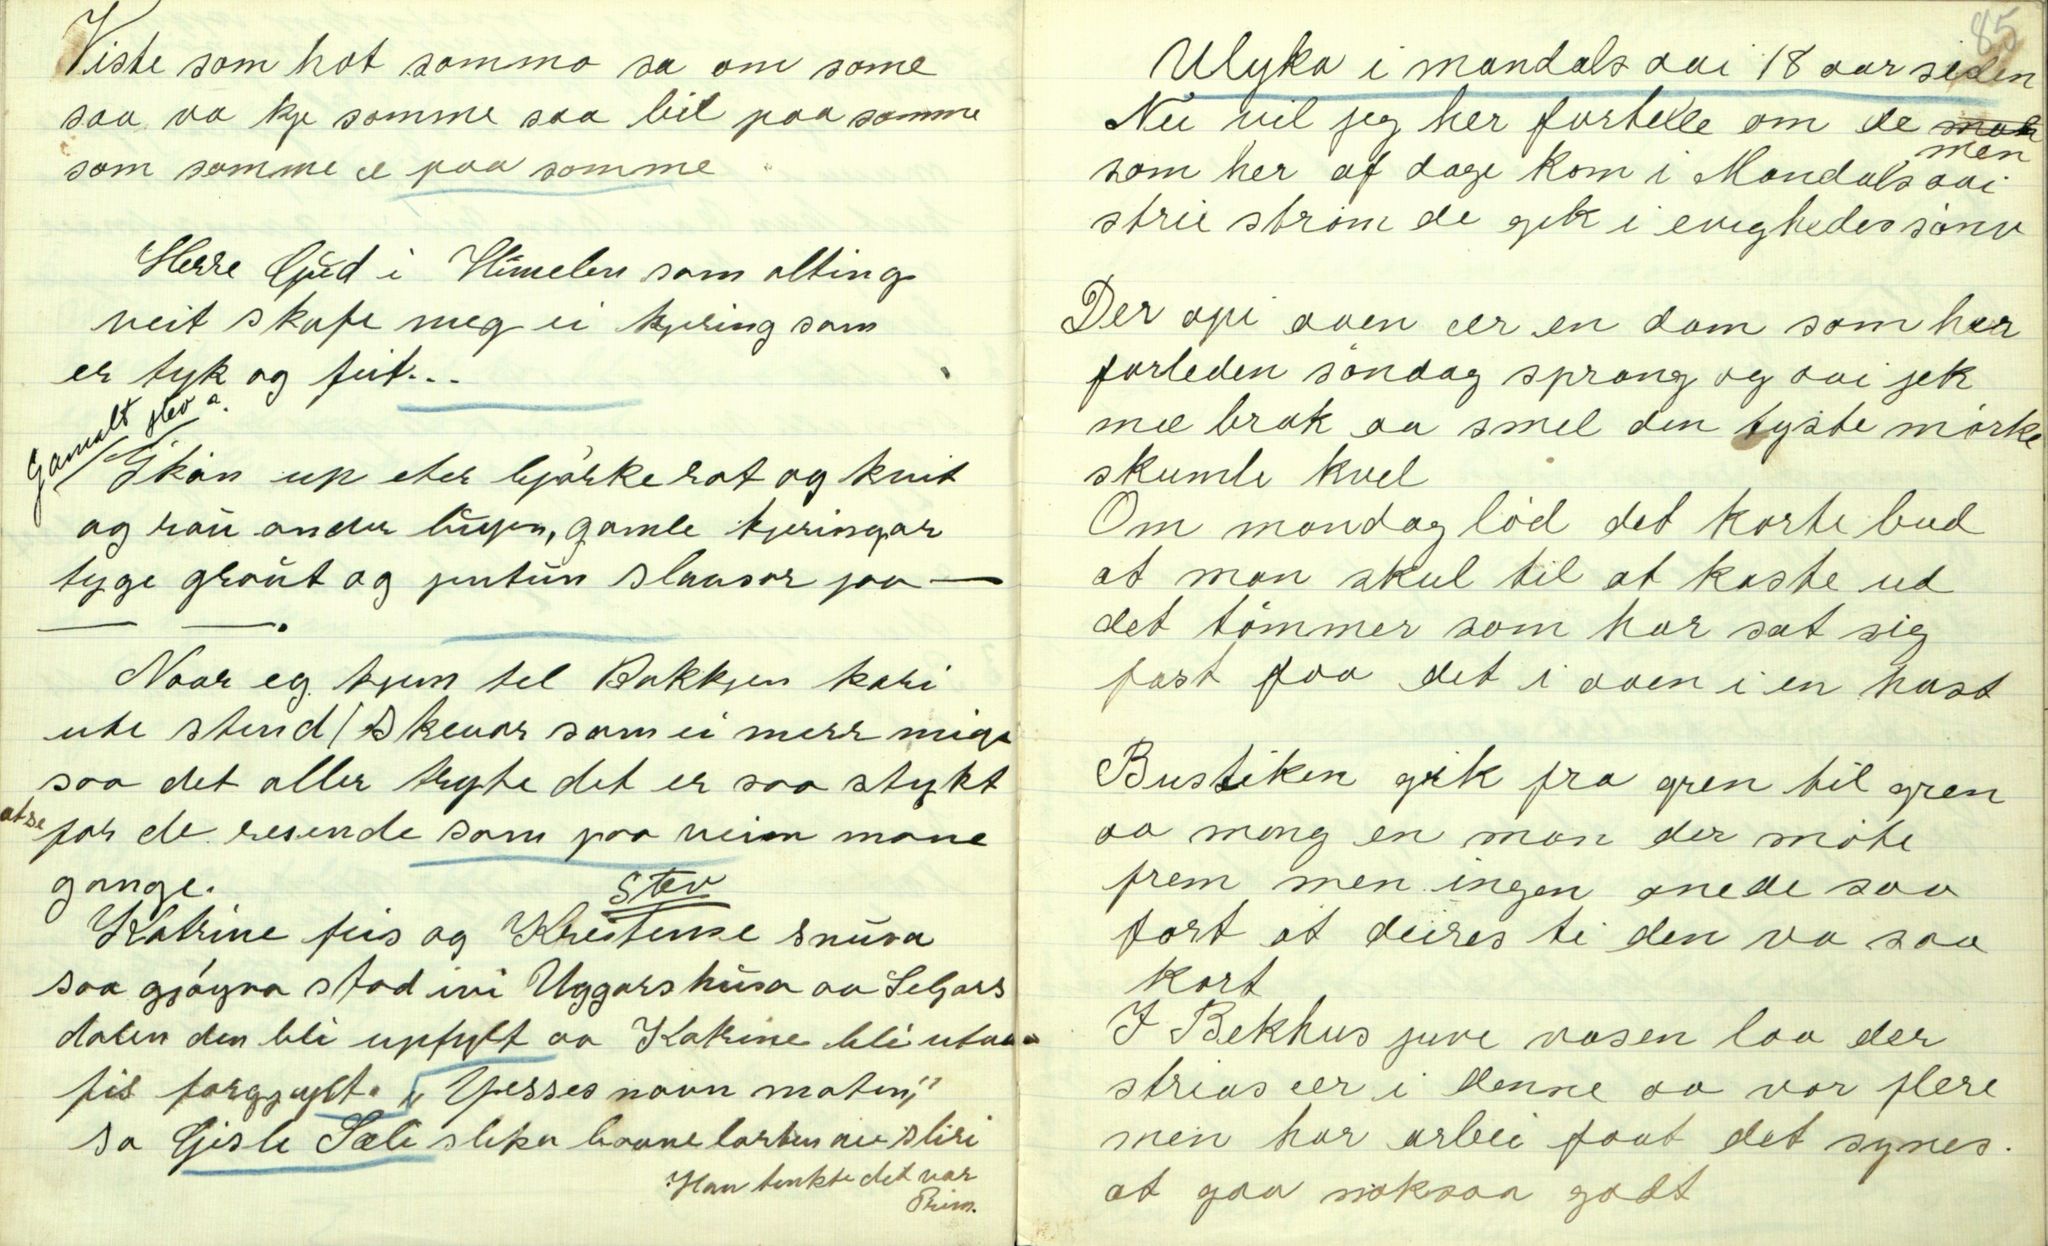 Viste som hot somma sa om some
saa va kje somme saa leil paa somme
som somme e paa somme
Herre Gud i Himelen som alting
veit skafe meg ei kjering som
er tyk og feit...
Gamalt stev a.
up eter bjørke rot og knit
og under gamle kjeringar
tyge graut og paa —
— —.
Naar eg kjem tel Bakkjen kari
ute stend / som ei merr miga
saa det aller tryte det er saa stykt
at se
for de resende som paa veien mane
gange.
Stev
Katrine feis og snuva
saa stod ivi Uggarshusa aa Seljors
dalen den bli upfylt aa Katrine bli utav
fis forgjyst. „Jesses navn maten,"
sa Gisle Sæli slika
Han tenkte det var
Prim.
85
Ulyka i mandals aai 18 aar siden
Nu vil jeg her fortelle om de
men
som her af dage kom i Mandals aai
strie strøm de gik i evighedes sønv
Der opi aaen er en dam som her
forleden søndag sprang og aai jek
me brak aa smel den tyste mørke
skumle kvel
Om mandag lød det korte bud
at man skul til at kaste ud
det tømmer som har sat sig
fast faa det i aaen i en hast
Bustiken gik fra gren til gren
aa mang en man der møte
frem men ingen anede saa
fort at deires ti den va saa
kort
I Bekhus juve vasen laa der
strias er i denne aa var flere
men har arbei faat det synes.
at gaa noksaa godt